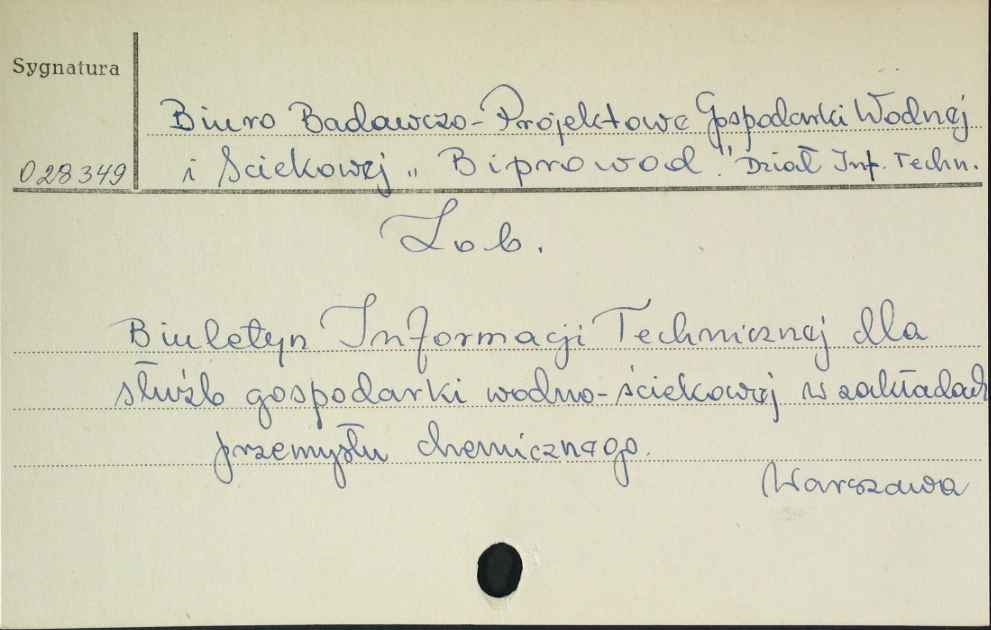 Sygnatura
Biuro Badawczo-Projektowe Gospodarki Wodnej
028349 i Ściekowej „Biprowod." Dział Inf. Techn.
Zob.
Biuletyn Informacji Technicznej dla
służb gospodarki wodno-ściekowej w zakładach
przemysłu chemicznego.
Warszawa